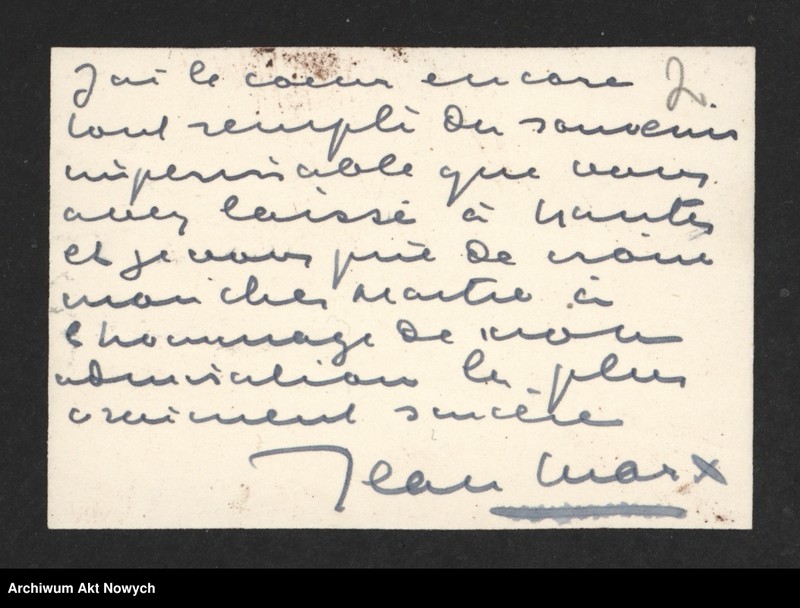 J'ai le coeur encore 2.
tout rempli du souvenir
impérissable que vous
avez laissé à Nantes
et je vous prie de croire
mon cher Maître à
l'hommage de mon
admiration la plus
vraiment sincère
Jean Marx
Archiwum Akt Nowych